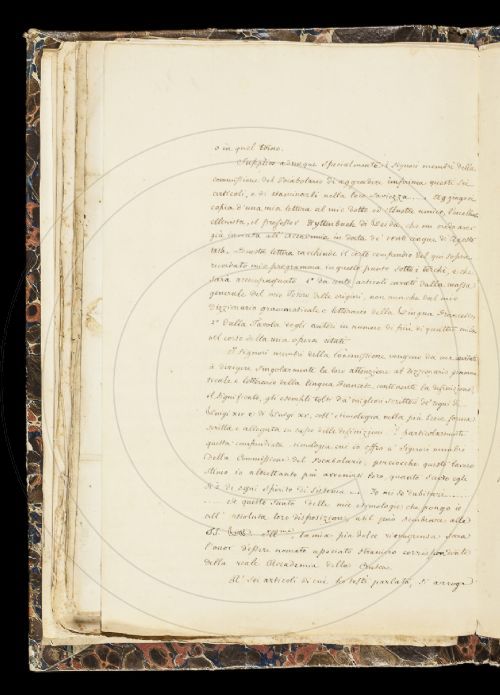 o in quel torno.
Supplico adunque specialmente i Signori membri della
commissione del Vocabolario di aggradire informa questi Sei
articoli, e di esaminarli nella loro Saviezza..... Aggiungo
copia d'una mia lettera al mio dotto ed illustre amico, l'eccellente
ellenista, il professor Wyttenbach di Leida, che mi
già inviata all'Accademia in data de' venti cinque di Agosto
Questa lettera racchiude il corto compendio del qui sopra
ricordato mio programma in questo punto sotto i torchi, e che
sarà accompagnato 1° da cento articoli cavati dalla massa
generale del mio Tesoro delle origini, non manche dal mio
Dizzionario grammaticale e letterario della Lingua Francese
2° dalla Tavola degli autori in numero di più di quattro mila
nel corso della mia opera citati.
I Signori membri della Commissione vengono da me
a dirigere singolarmente la loro attenzione al Dizzionario gramma
ticale e letterario della lingua Francese, contenente la definizione,
il significato, gli esempli tolti da' migliori scrittori de' regni di
Luigi XIV e di Luigi XV, coll'etimologia nella più breve forma
scritta e allegata in capo delle definizioni. È particolarmente
questa etimologia che io offro a' Signori membri
della Commissione del Vocabolario; perciocchè questo lavoro
stimo io altrettanto più acconcio loro quanto scevro egli
è di ogni spirito di Sistema.... Io me ne dubitare.........
Se questo Santo delle mie etimologie che pongo io
all' assoluta loro disposizione, util può sembrare alla
la mia più dolce ricompensa sarà
l'onor d'esser nomato apociato straniero corrispondente
della reale Accademia della Crusca.
Al' Sei articoli di cui ho testè parlato, si arroga